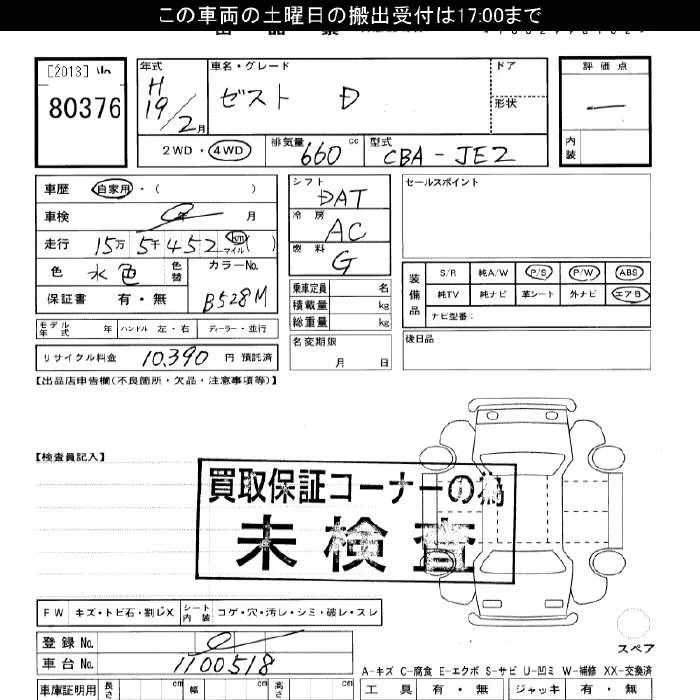 この車両の土曜日の搬出受付は17:00まで
[2013]
80376
年式
H
19/2月
車名・グレード
ゼスト D
ドア
形状
評価点
—
内装
2WD・4WD
排気量 660 cc
型式 CBA-JE2
車歴 自家用・( )
車検 0年 月
走行 15万5千452 km マイル ( )
色 水色
色替
カラーNo.
B528M
保証書 有・無
シフト
DAT
冷房
AC
燃料
G
乗車定員 名
積載量 kg
総重量 kg
名変期限
月 日
セールスポイント
装備品
S/R 純A/W P/S P/W ABS
純TV 純ナビ 革シート 外ナビ エアB
ナビ型番:
後日品
モデル年式 年 ハンドル 左・右 ディーラー・並行
リサイクル料金 10,390 円 預託済
【出品店申告欄(不良箇所・欠品・注意事項等)】
【検査員記入】
買取保証コーナーの為
未検査
FW キズ・トビ石・割レX シート内装 コゲ・穴・汚レ・シミ・破レ・スレ
登録No. 0
車台No. 1100518
スペア
A-キズ C-腐食 E-エクボ S-サビ U-凹ミ W-補修 XX-交換済
車庫証明用 長さ cm 幅 cm 高さ cm
工具 有・無 ジャッキ 有・無